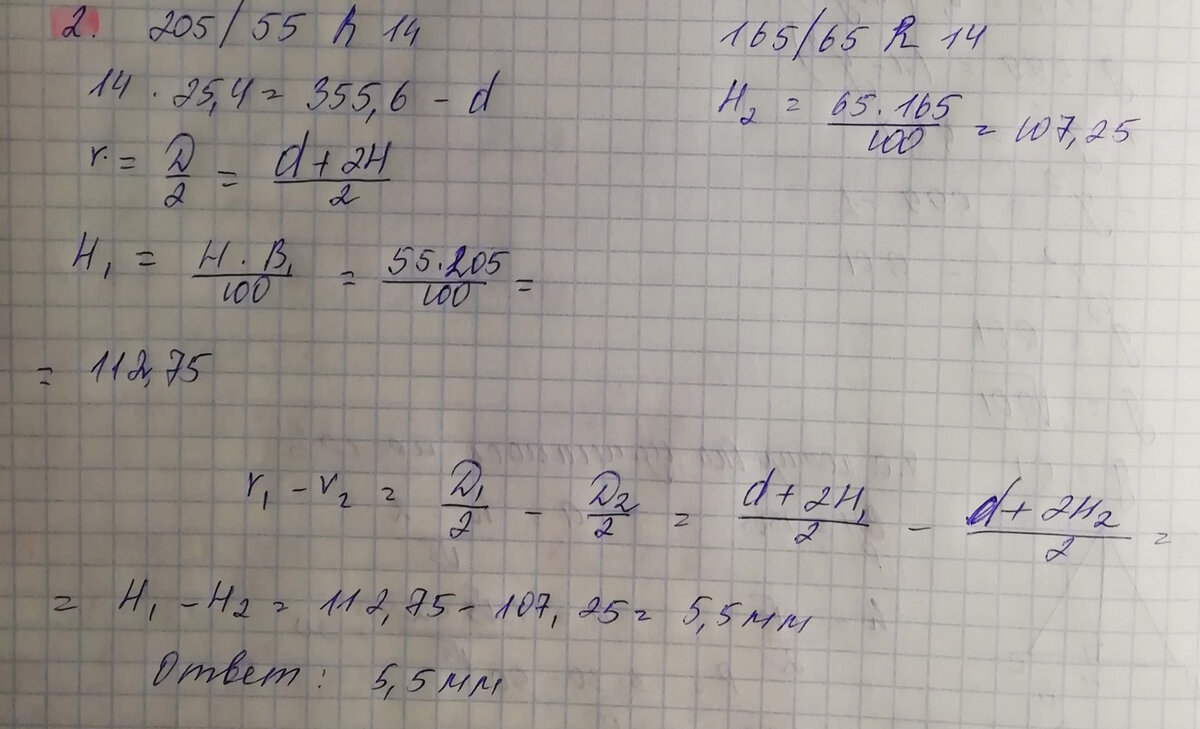 2. 205/55 R 14
165/65 R 14
14 · 25,4 = 355,6 - d
H₂ = 65·165/100 = 107,25
r = D/2 = (d + 2H)/2
H₁ = H·B₁/100 = 55·205/100 =
= 112,75
r₁ - r₂ = D₁/2 - D₂/2 = (d + 2H₁)/2 - (d + 2H₂)/2 =
= H₁ - H₂ = 112,75 - 107,25 = 5,5 мм
Ответ: 5,5 мм